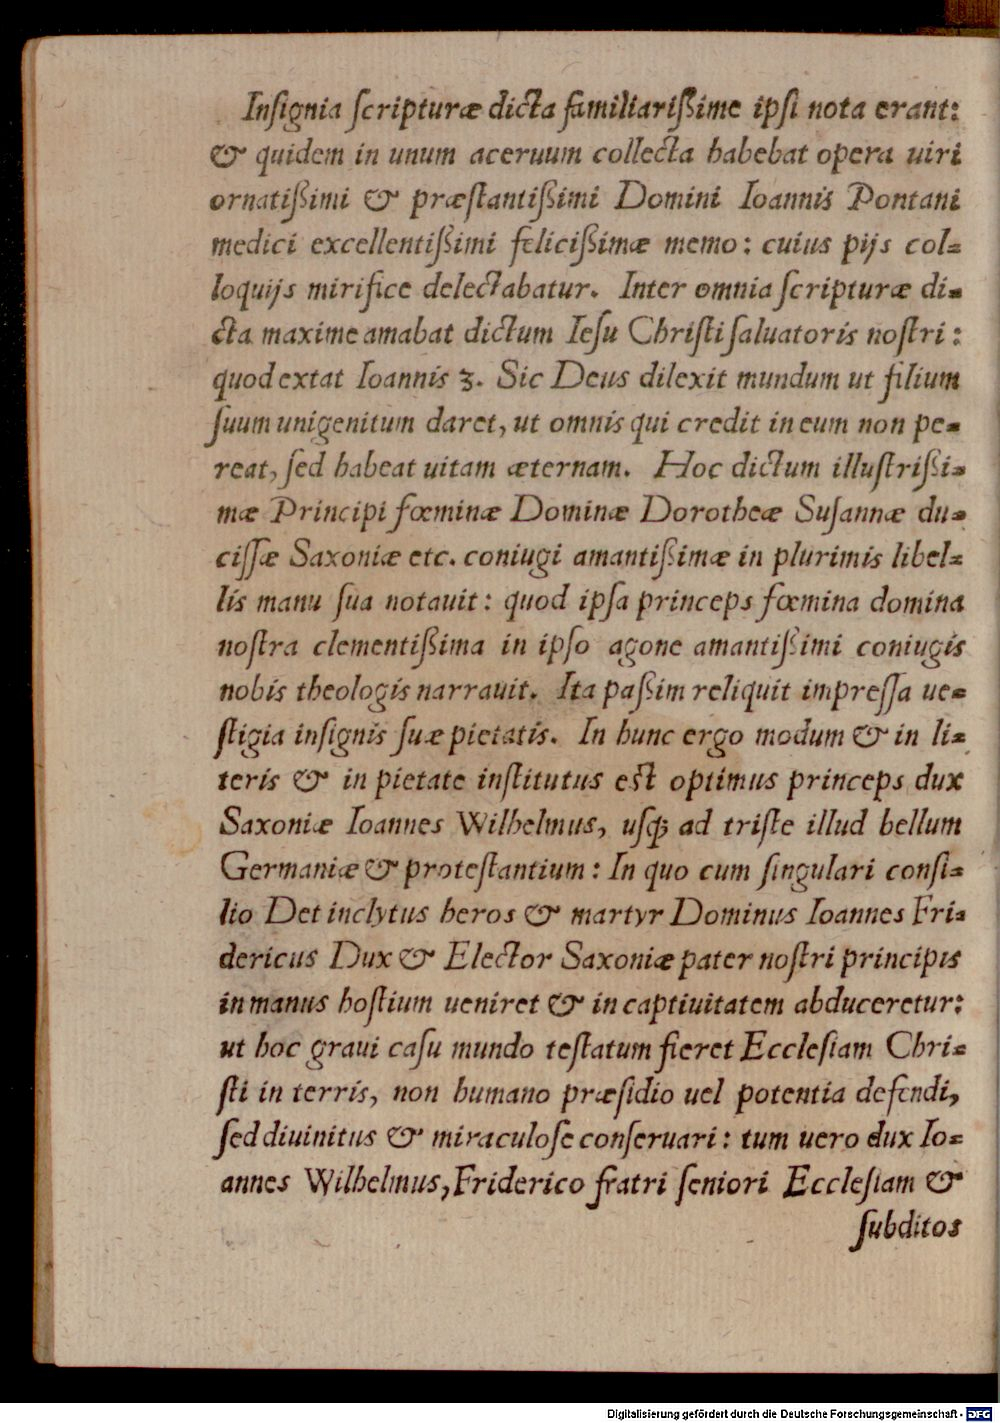 Inſignia ſcripturæ dicta familiarißime ipſi nota erant:
& quidem in unum aceruum collecta habebat opera uiri
ornatißimi & præſtantißimi Domini Ioannis Pontani
medici excellentißimi felicißimæ memo: cuius pijs col=
loquijs mirifice delectabatur. Inter omnia ſcripturæ di=
cta maxime amabat dictum Ieſu Chriſti ſaluatoris noſtri:
quod extat Ioannis 3. Sic Deus dilexit mundum ut filium
ſuum unigenitum daret, ut omnis qui credit in eum non pe=
reat, ſed habeat uitam æternam. Hoc dictum illuſtrißi=
mæ Principi fœminæ Dominæ Dorotheæ Suſannæ du=
ciſſæ Saxoniæ etc. coniugi amantißimæ in plurimis libel=
lis manu ſua notauit: quod ipſa princeps fœmina domina
noſtra clementißima in ipſo agone amantißimi coniugis
nobis theologis narrauit. Ita paßim reliquit impreſſa ue=
ſtigia inſignis ſuæ pietatis. In hunc ergo modum & in li=
teris & in pietate inſtitutus eſt optimus princeps dux
Saxoniæ Ioannes Wilhelmus, uſq; ad triſte illud bellum
Germaniæ & proteſtantium: In quo cum ſingulari conſi=
lio Dei inclytus heros & martyr Dominus Ioannes Fri=
dericus Dux & Elector Saxoniæ pater noſtri principis
in manus hoſtium ueniret & in captiuitatem abduceretur:
ut hoc graui caſu mundo teſtatum fieret Eccleſiam Chri=
ſti in terris, non humano præſidio uel potentia defendi,
ſed diuinitus & miraculoſe conſeruari: tum uero dux Io=
annes Wilhelmus, Friderico fratri ſeniori Eccleſiam &
ſubditos
Digitalisierung gefördert durch die Deutsche Forschungsgemeinschaft - DFG